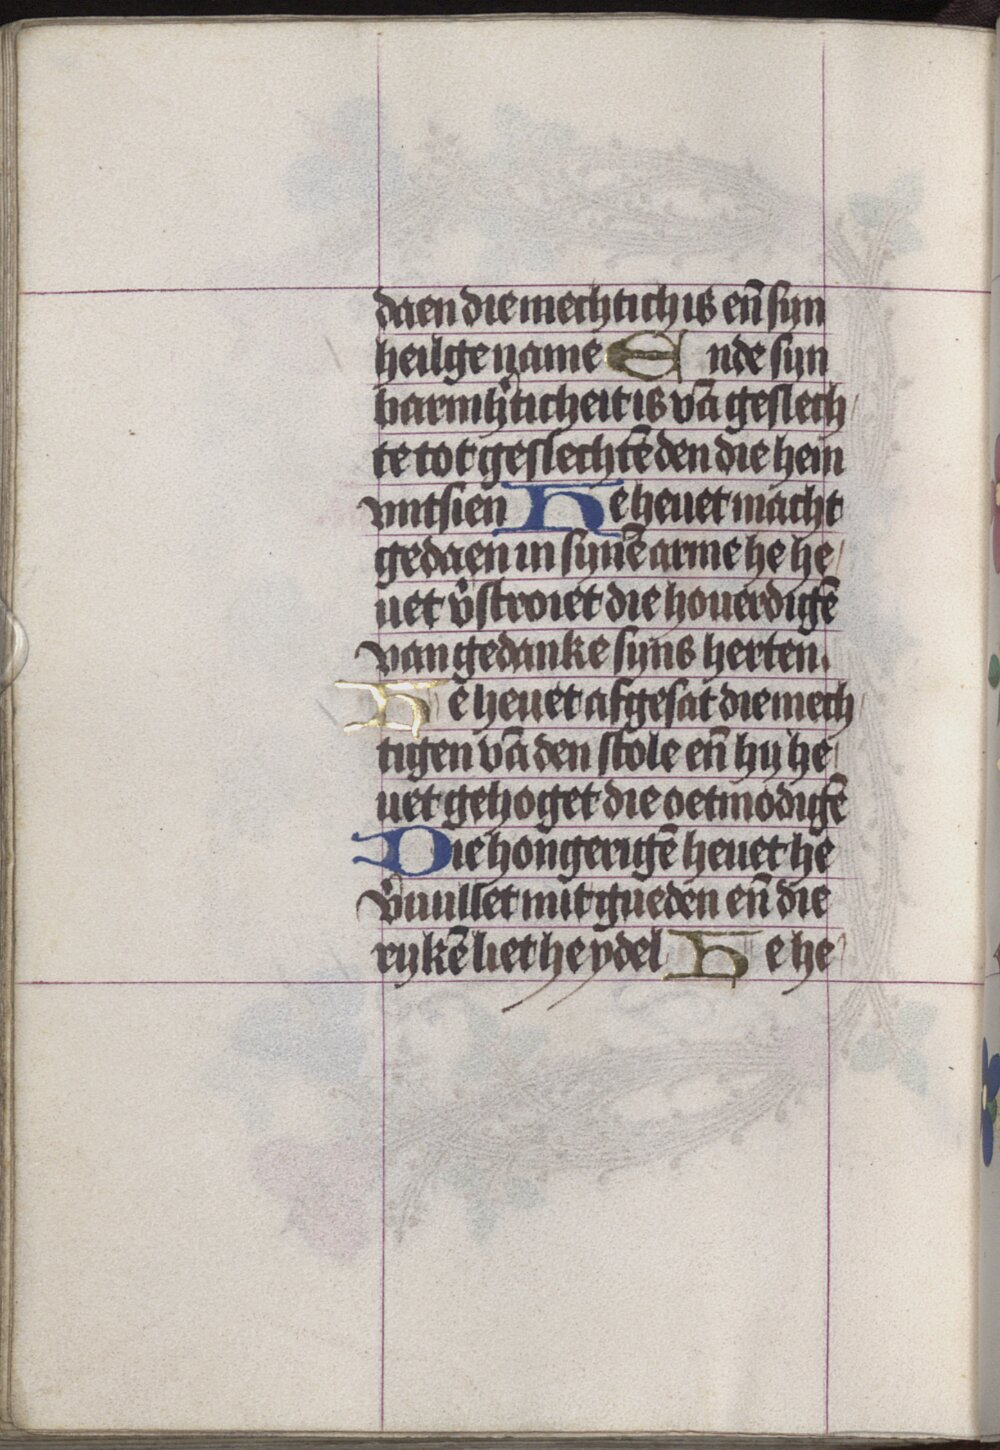 daen die mechtich is en̄ syn
heilge name Ende syn
barmh̛ticheit is vā geslech
te tot geslechtē den die hem
vntsien He heuet macht
gedaen in synē arme he he
uet v̛stroiet die houerdigē
van gedanke syns herten.
He heuet afgesat die mech
tigen vā den stole en̄ hy he
uet gehoget die oetmodigē
Die hongerigē heuet he
v̛uullet mit gueden en̄ die
rykē liet he ydel He he